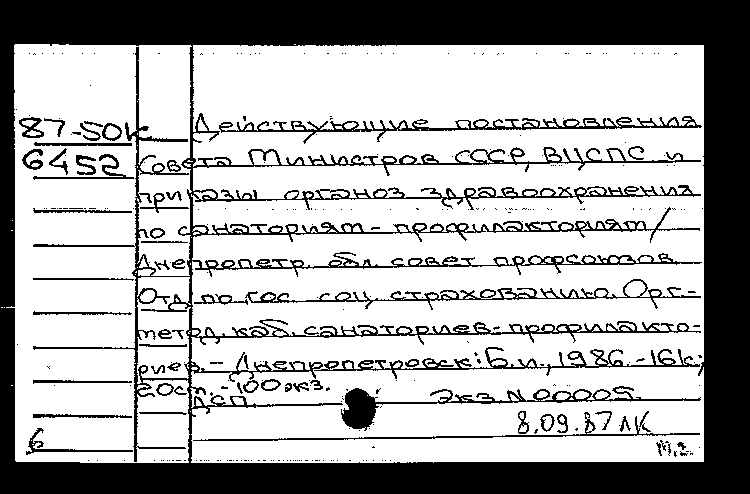 87-50к Действующие постановления
6452 Совета Министров СССР, ВЦСПС и
приказы органоз здравоохранения
по санаториям-профилакториям/
Днепропетр. обл. совет профсоюзов.
Отд. по гос. соц. страхованию. Орг.-
метод. каб. санаториев-профилакто-
риев. - Днепропетровск: Б.и., 1986. - 16к;
20см. - 100 экз.
ДСП. Экз. N 00005.
8.09.87 ЛК
6